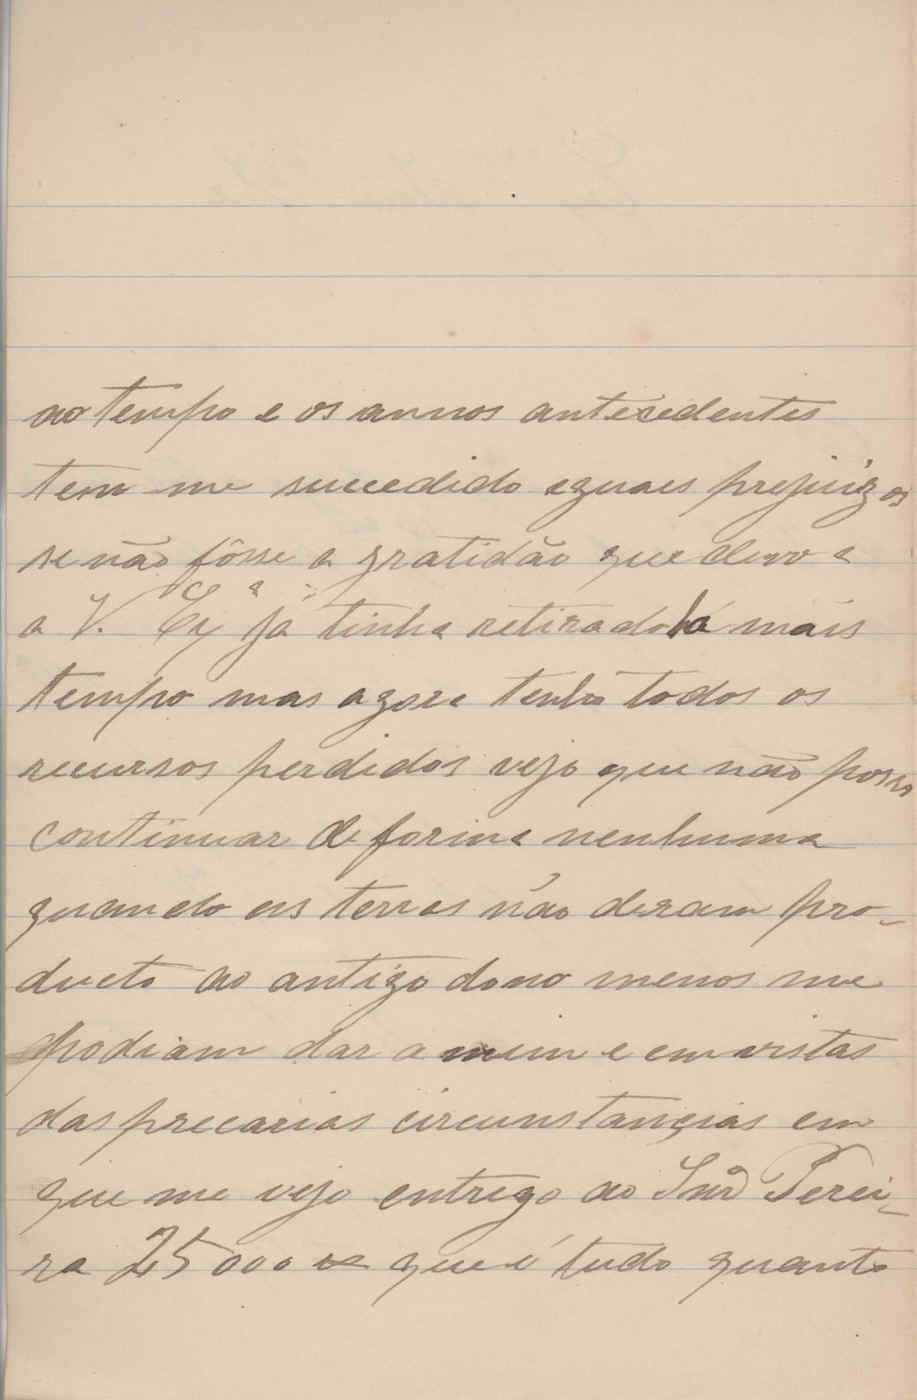 ao tempo e os annos antecedentes
tem me succedido eguaes prejuizos
se não fôsse a gratidão que devo a
a V. Exª já tinha retirado la mais
tempo mas agora tenho todos os
recursos perdidos vejo que não posso
continuar de forma nenhuma
quando as terras não deram pro-
ducto ao antigo dono menos me
podiam dar a mim e em vistas
das precarias circunstançias em
que me vejo entrego ao Snr Perei-
ra 25000 que é tudo quanto